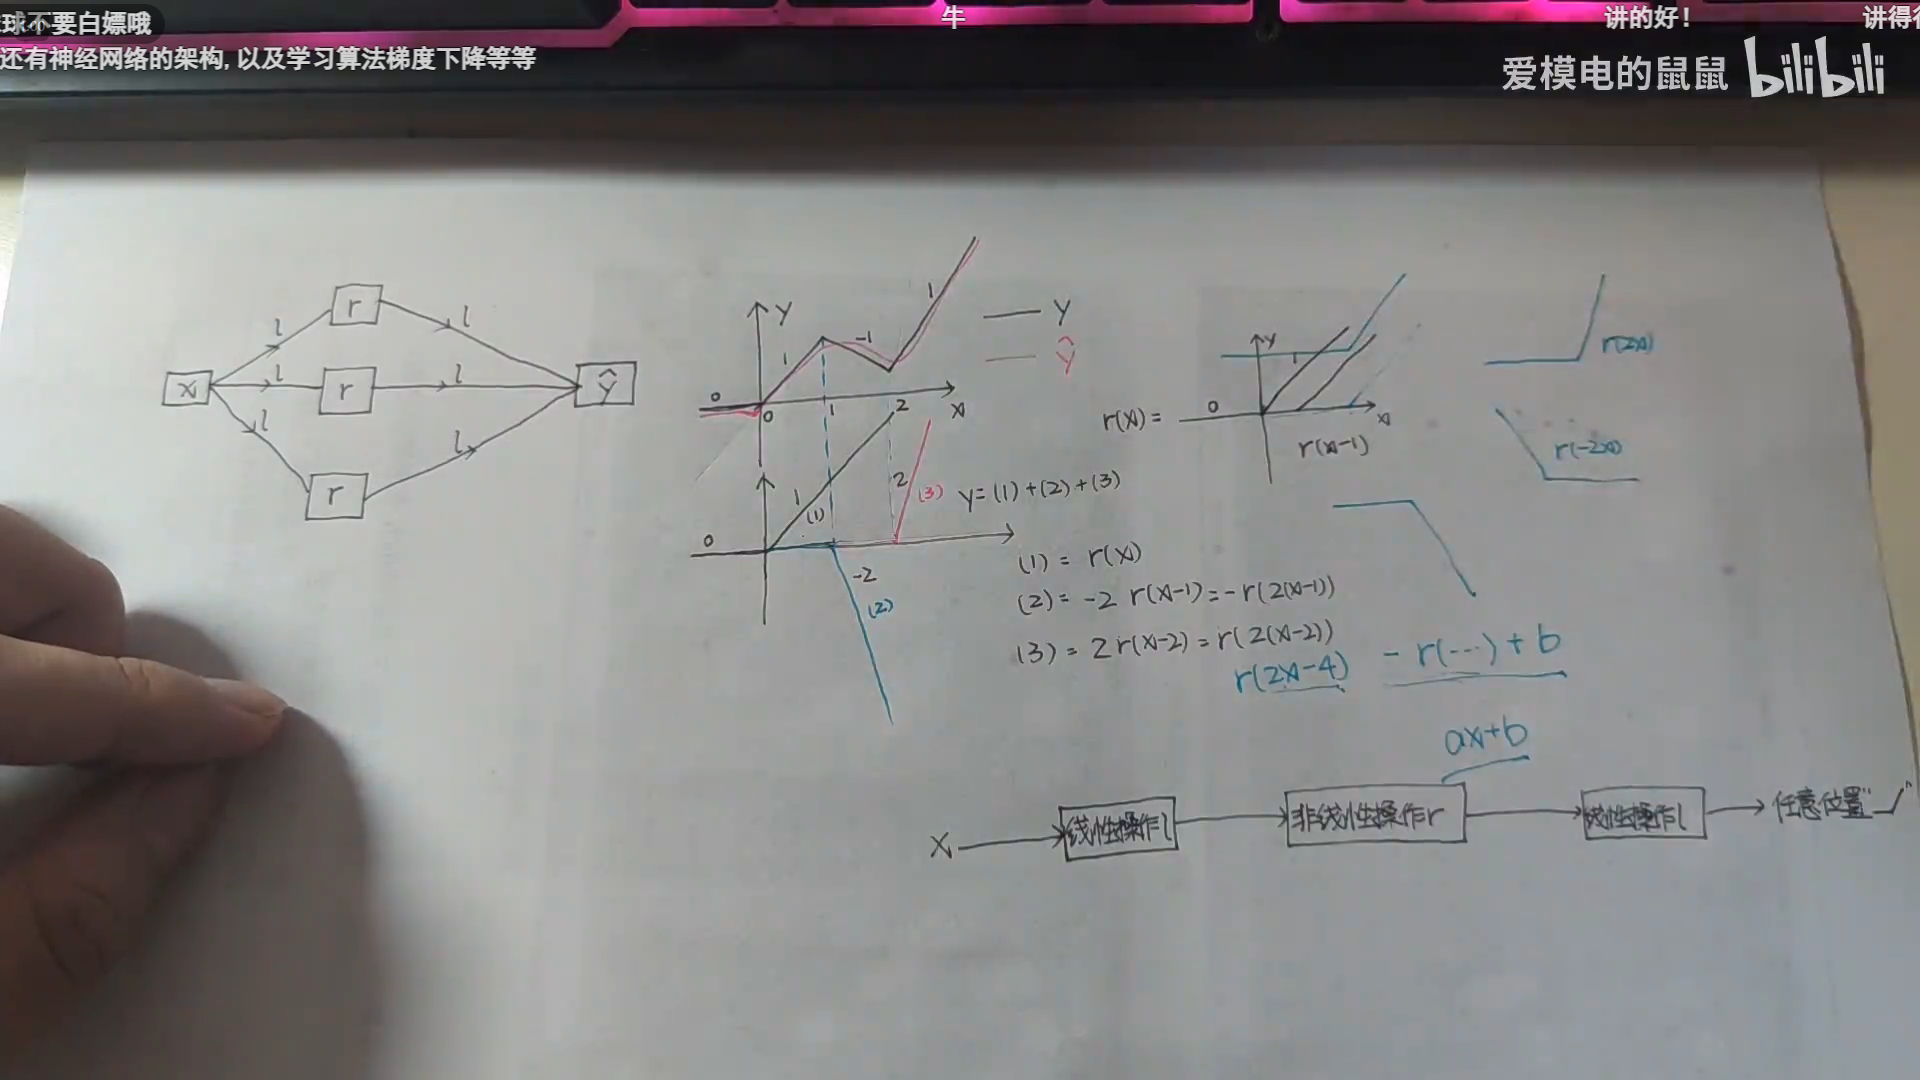 球不要白嫖哦
牛
讲的好！
讲得很
还有神经网络的架构, 以及学习算法梯度下降等等
爱模电的鼠鼠 bilibili
x
l
l
l
r
r
r
l
l
l
ŷ
Y
0
1
-1
1
Y
Ŷ
0
1
2
x
0
1
(1)
2
(3)
-2
(2)
y=(1)+(2)+(3)
(1) = r(x)
(2) = -2 r(x-1) = -r(2(x-1))
(3) = 2r(x-2) = r(2(x-2))
r(2x-4)
- r(…) + b
r(x) =
0
1
Y
x
r(x-1)
r(2x)
r(-2x)
ax+b
X
线性操作l
非线性操作r
线性操作l
任意位置"_/"